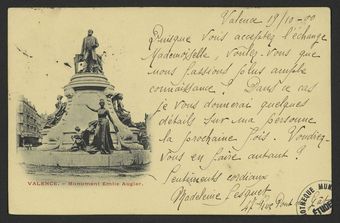 Valence 19/10-00
Puisque vous acceptez l'échange
Mademoiselle, voulez-vous que
nous fassions plus ample
connaissance ? Dans ce cas
je vous donnerai quelques
détails sur ma personne
la prochaine fois. Voudriez-
vous en faire autant ?
Sentiments cordiaux
Madeleine
VALENCE. - Monument Emile Augier.